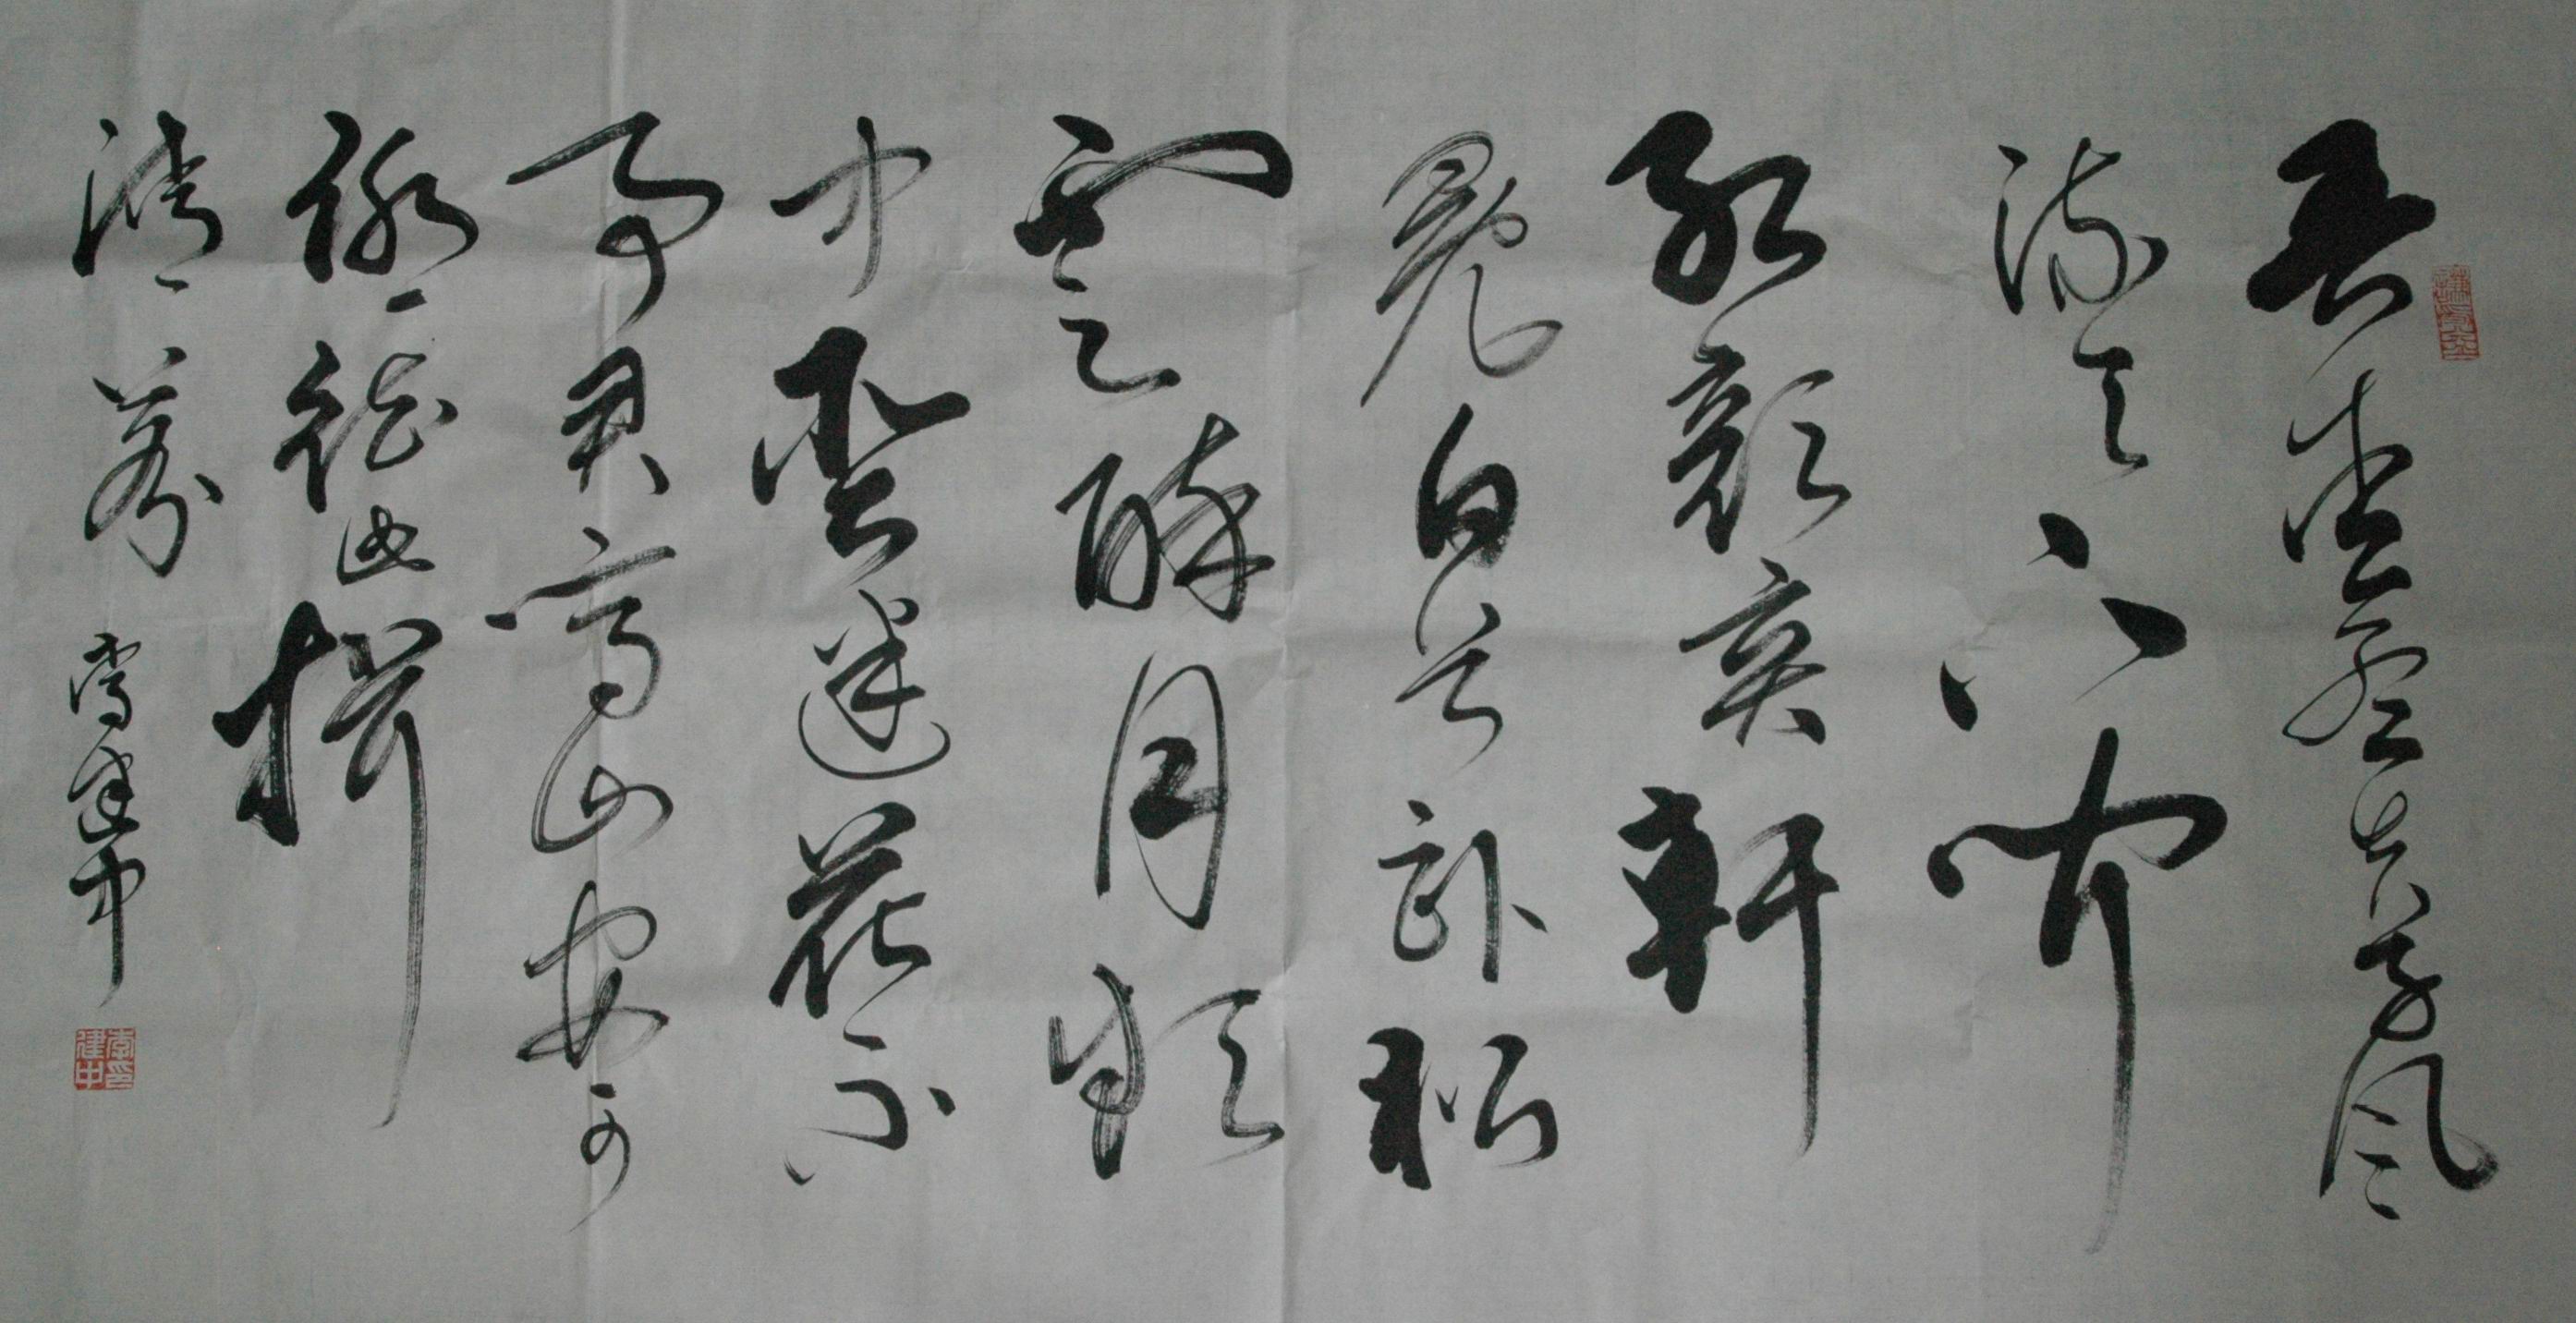 吾爱孟夫子风
流天下闻
红颜弃轩
冕白首卧松
云醉月频
中圣迷花不
事君高山安可
仰徒此揖
清芬 李建中
李印建中